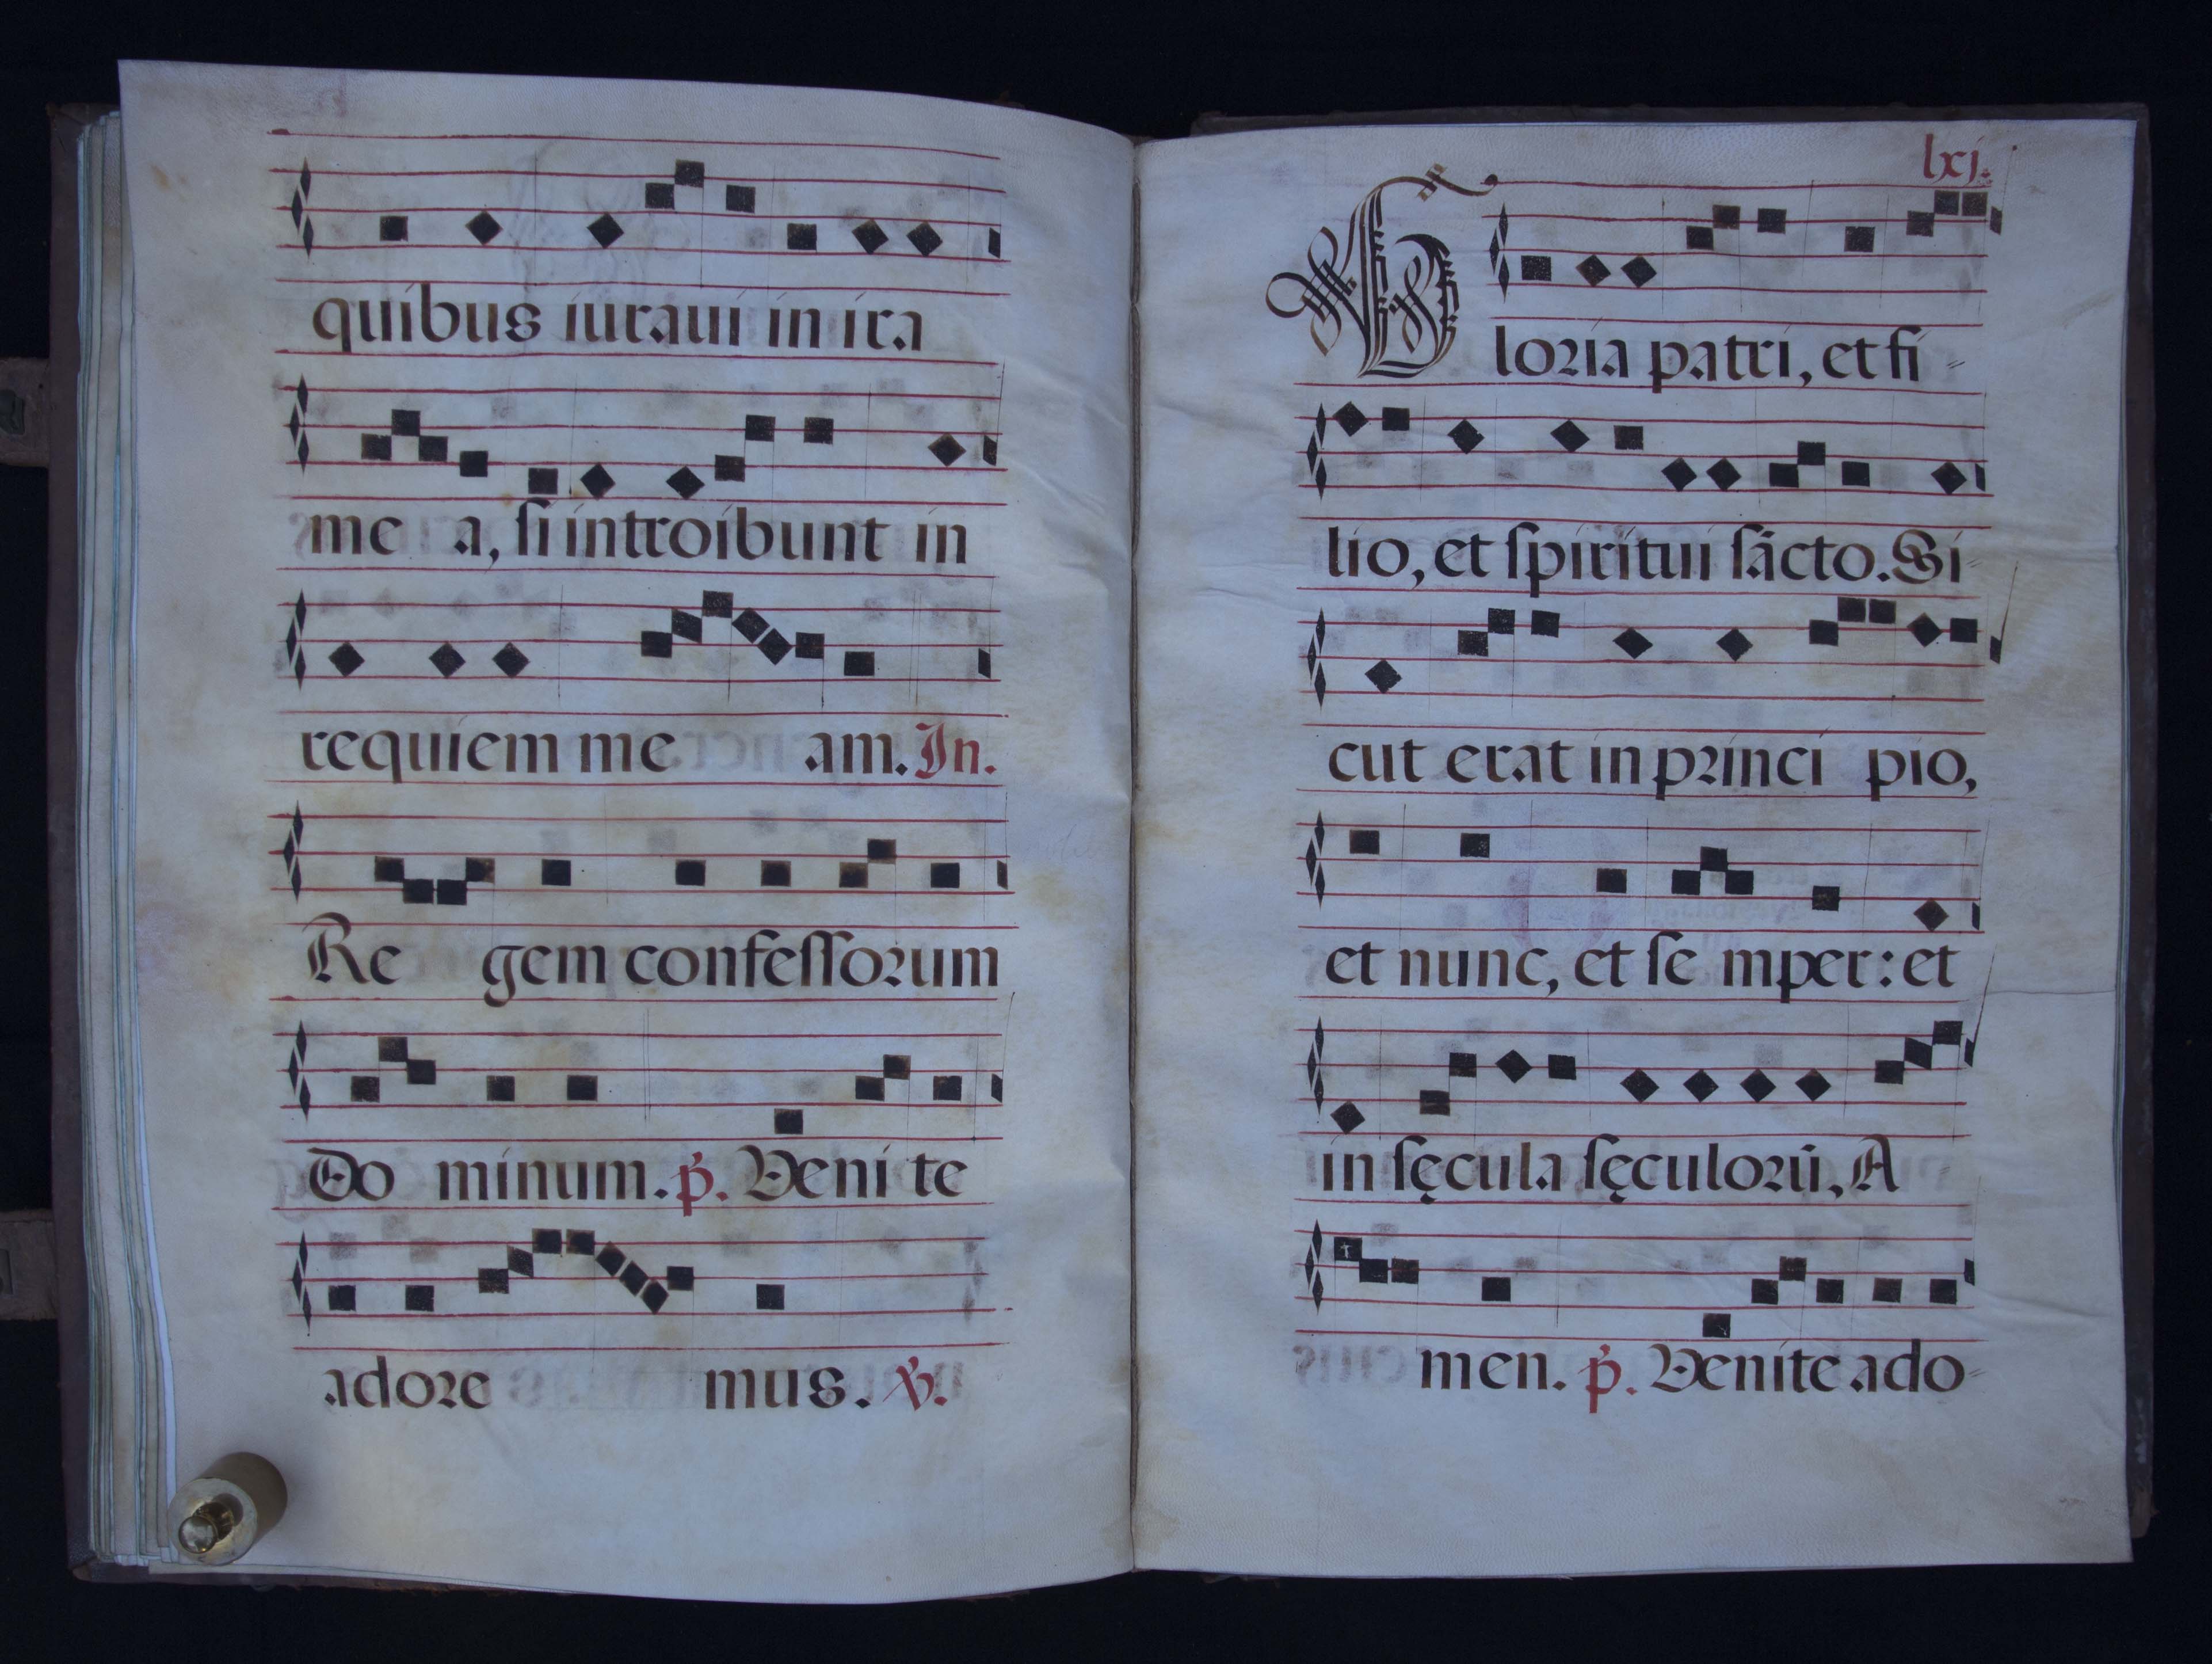 quibus iuraui in ira
me a, ſi introibunt in
requiem me am. In.
Re gem confeſſorum
Do minum. p. Veni te
adore mus. ℣.
lxj.
Gloria patri, et fi-
lio, et ſpiritui ſācto. Si-
cut erat in princi pio,
et nunc, et ſe mper: et
in ſęcula ſęculorū, A
men. p. Venite ado-